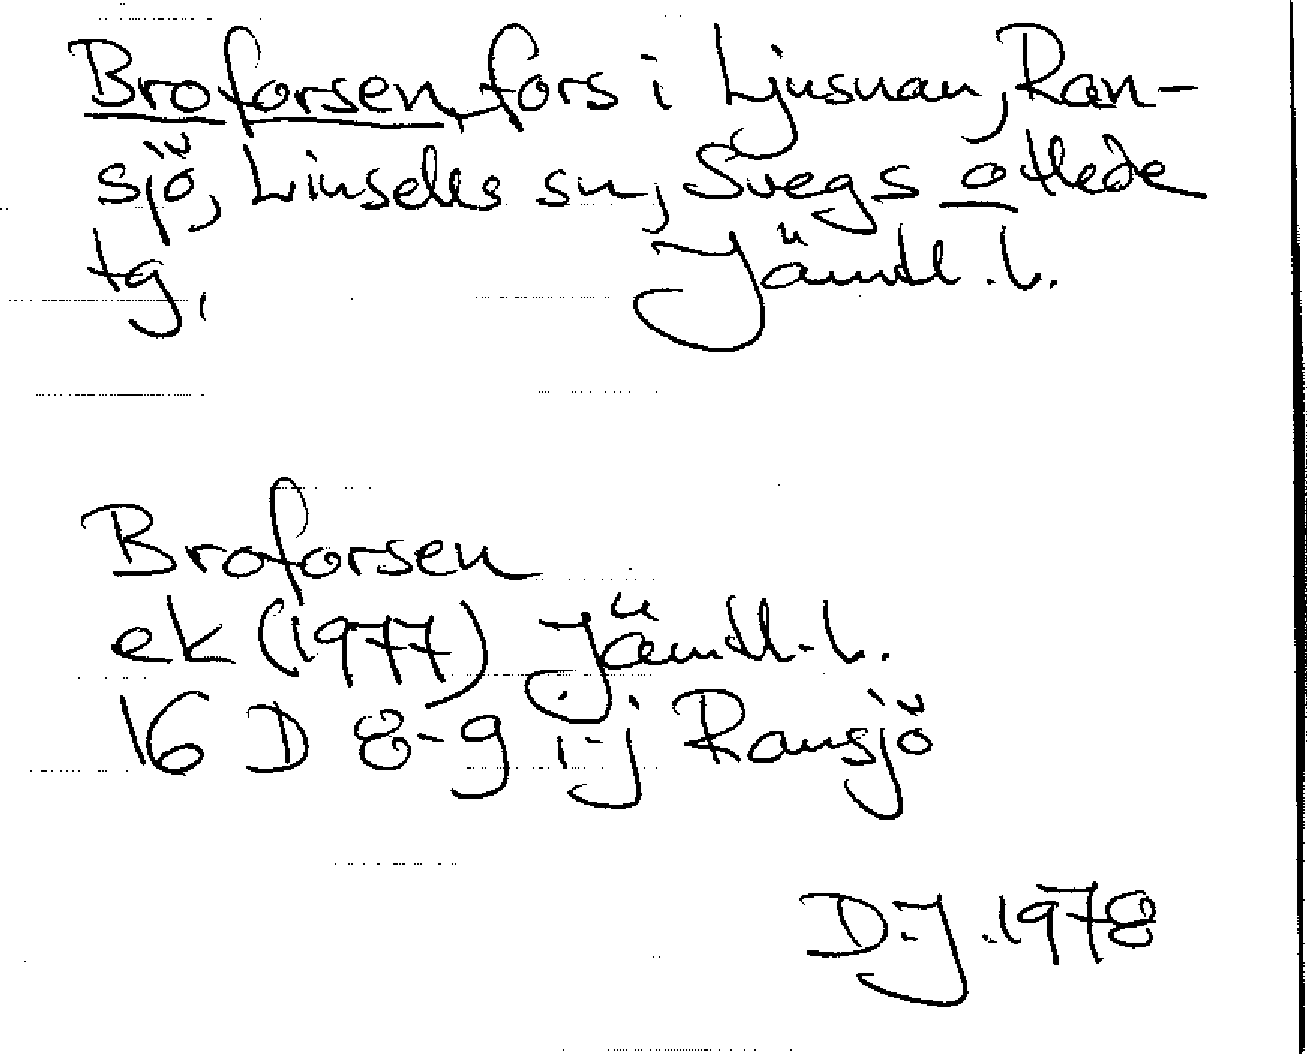 Broforsen, fors i Ljusnan, Ran-
sjö, Linsells sn, Svegs
tg, Jämtl. l.
Broforsen
ek (1977) Jämtl. l.
16 D 8-9 i-j Ransjö
D.J. 1978